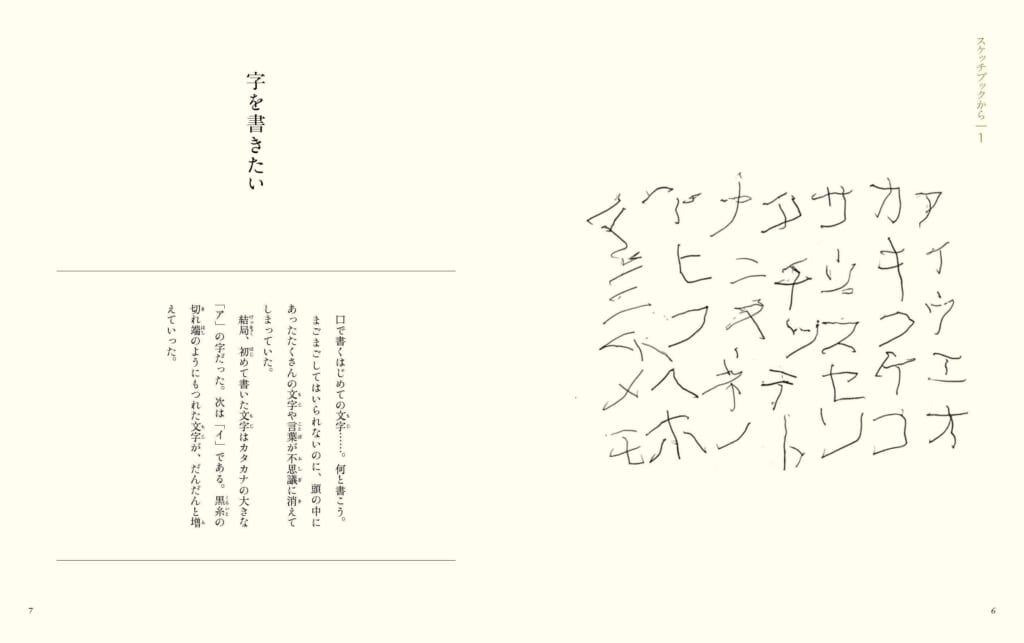 スケッチブックから｜1
アイウエオ
カキクケコ
サシスセソ
タチツテト
ナニヌネノ
ハヒフヘホ
マミムメモ
6
字を書きたい
口で書くはじめての文字……。何と書こう。
まごまごしてはいられないのに、頭の中に
あったたくさんの文字や言葉が不思議に消えて
しまっていた。
結局、初めて書いた文字はカタカナの大きな
「ア」の字だった。次は「イ」である。黒糸の
切れ端のようにもつれた文字が、だんだんと増
えていった。
7